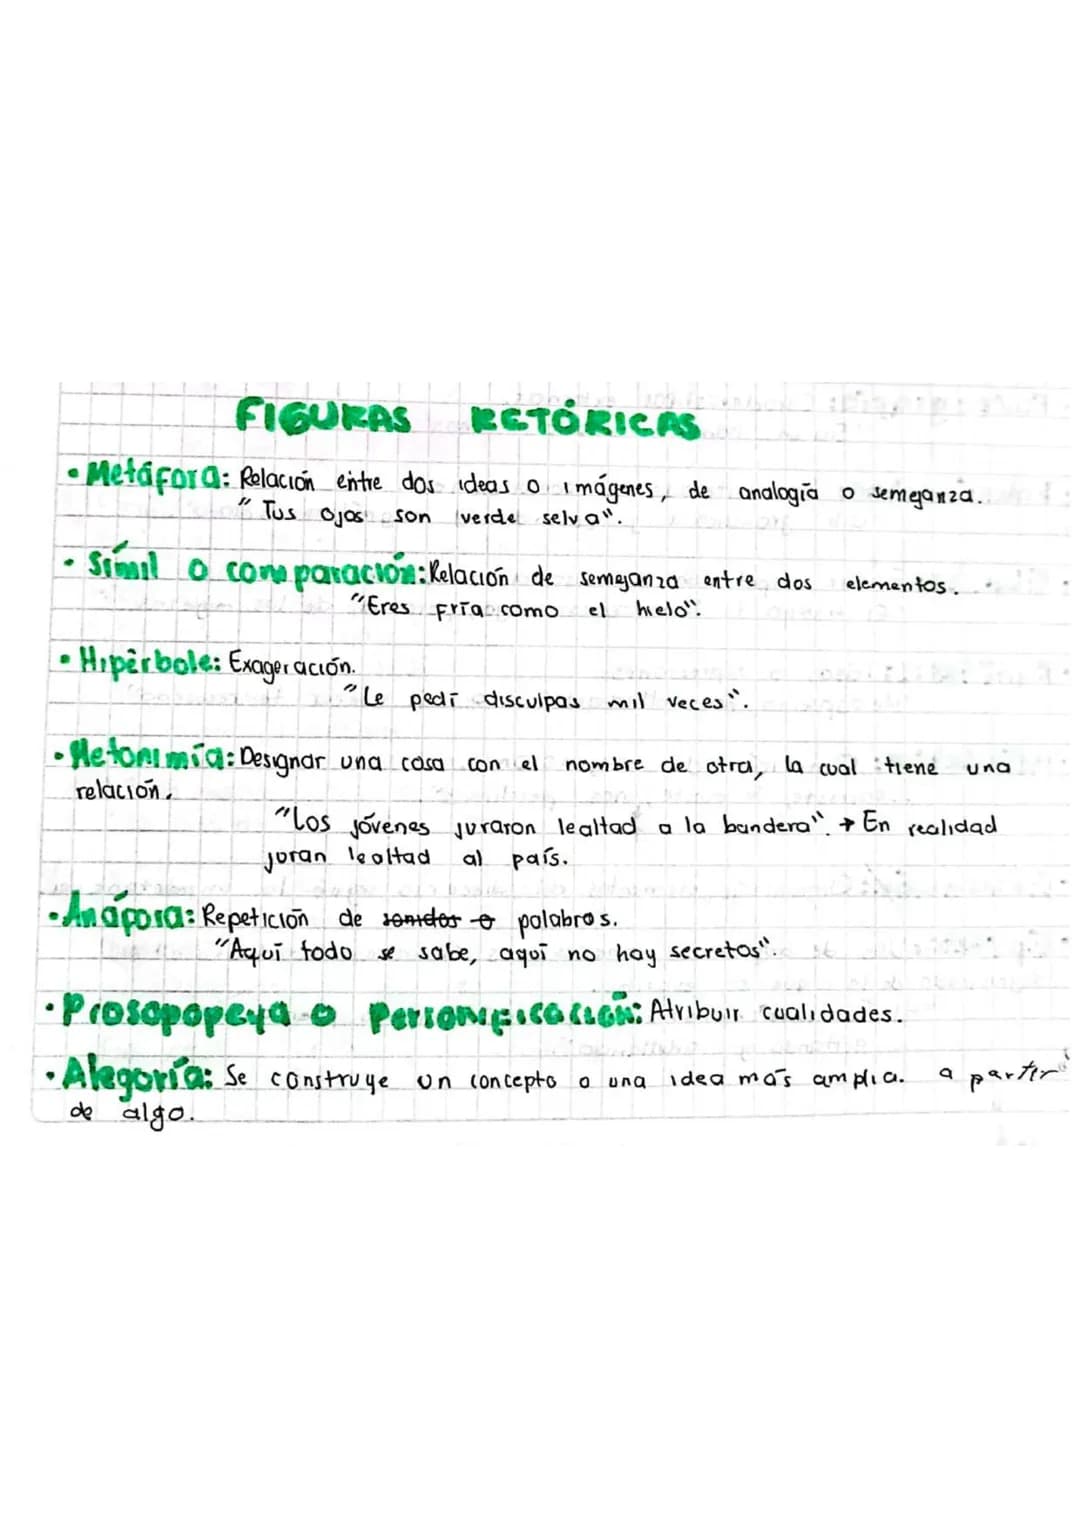 FIGURAS RETÓRICAS
• Metáfora: Relación entre dos ideas o imágenes, de analogía o semejanza.
"Tus ojos son verde selva".
• Símil o comparación: Relación de semejanza entre dos elementos.
"Eres fría como el hielo".
• Hipérbole: Exageración.
"Le pedí disculpas mil veces".
• Metonimía: Designar una cosa con el nombre de otra, la cual tiene una
relación.
"Los jóvenes juraron lealtad a la bandera". → En realidad
juran lealtad al país.
• Anáfora: Repetición de sonidos o palabras.
"Aquí todo se sabe, aquí no hay secretos".
• Prosopopeya o Personificación: Atribuir cualidades.
• Alegoría: Se construye un concepto o una idea más amplia. a partir
de algo.